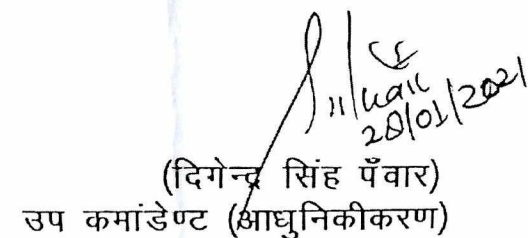 28/01/2021
(दिगेन्द्र सिंह पँवार)
उप कमांडेण्ट (आधुनिकीकरण)